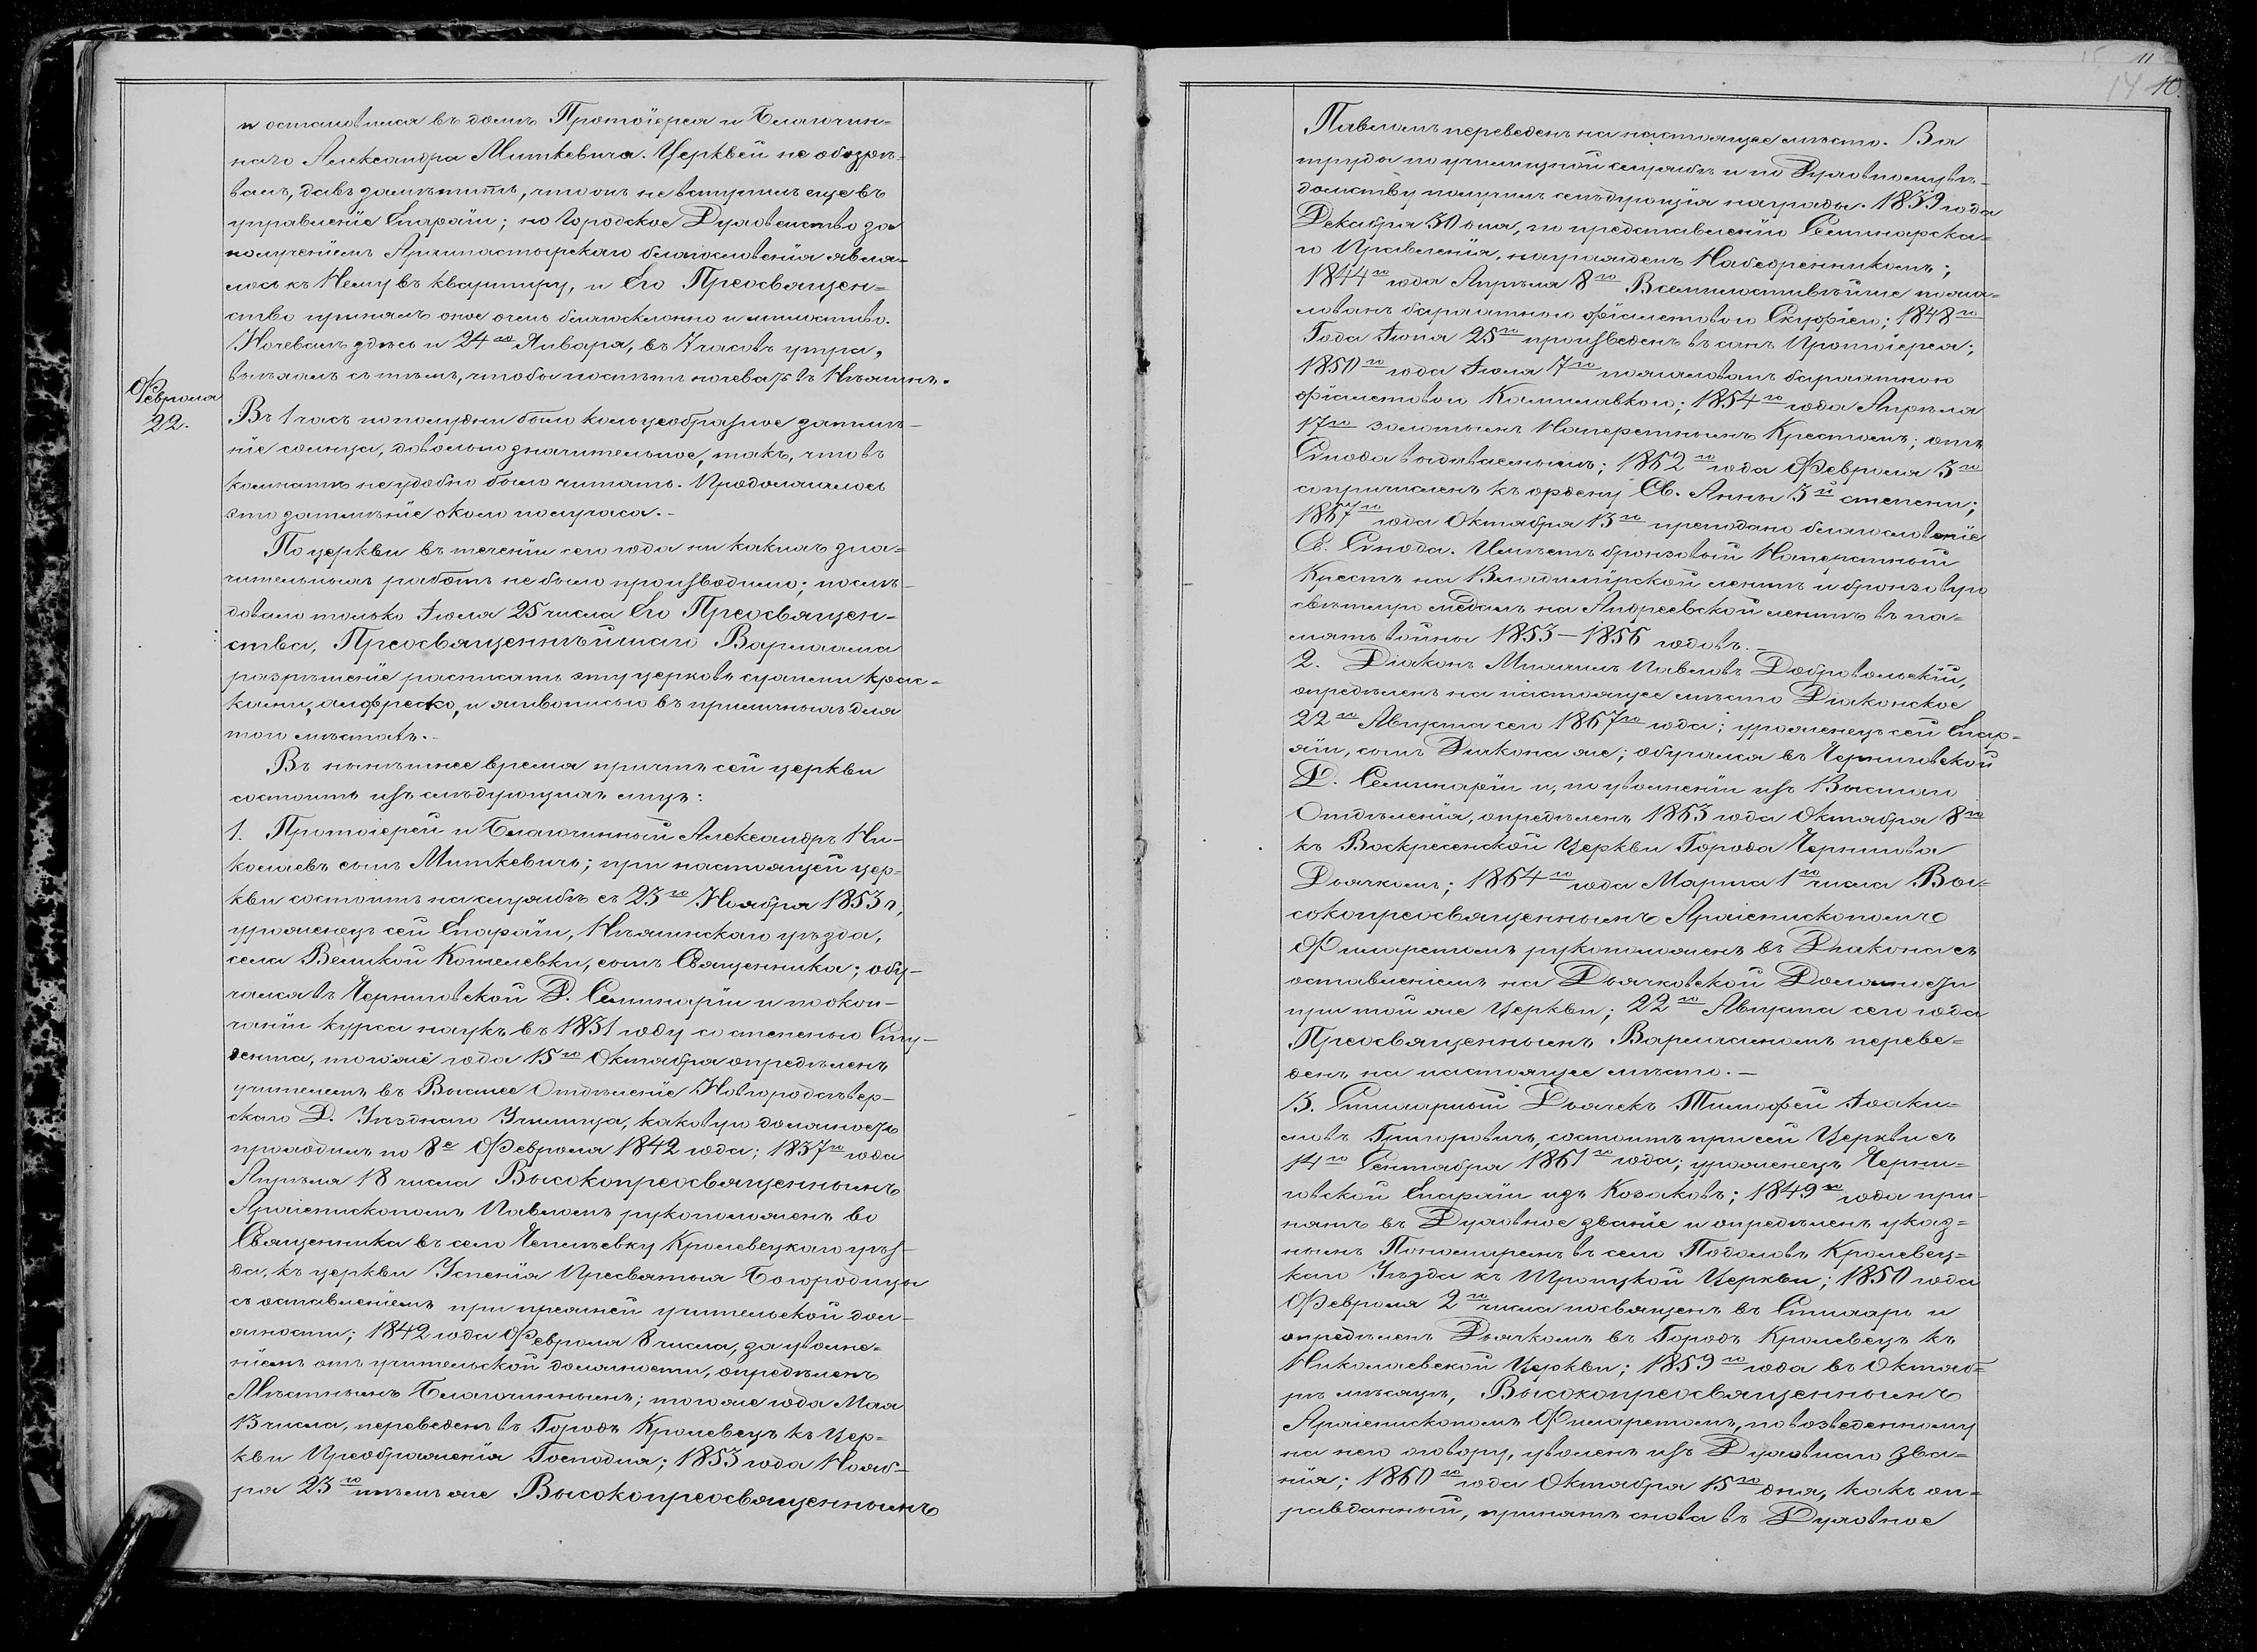 и остановился въ домѣ Протоіерея и Благочин-
наго Александра Миткевича. Церквей не обозрѣ-
валъ, давъ замѣтить, что онъ не вступилъ еще въ
управленіе Епархіи; но Городское Духовенство за
полученіемъ Архипастырскаго благословенія явля-
лось къ Нему въ квартиру, и Его Преосвящен-
ство принялъ оное очень благосклонно и милостиво.
Ночевалъ здѣсь и 24го Января, въ 7 часовъ утра,
выѣхалъ съ тѣмъ, чтобы поспѣть ночевать въ Нѣжинъ.
Февраля
22.
Въ 1 часъ пополудни было кольцеобразное затмѣ-
ніе солнца, довольно значительное, такъ, что въ
комнатѣ неудобно было читать. Продолжалось
это затмѣніе около получаса.-
По церкви въ теченіи сего года ни какихъ зна-
чительныхъ работъ не было произведено; послѣ-
довало только Іюля 25 числа Его Преосвящен-
ства, Преосвященнѣйшаго Варлаама
разрѣшеніе росписать эту церковь сухими крас-
ками, алфреско, и живописью въ приличныхъ для
того мѣстахъ.-
Въ нынѣшнее время причтъ сей церкви
состоитъ изъ слѣдующихъ лицъ:
1. Протоіерей и Благочинный Александръ Ни-
колаевъ сынъ Миткевичъ; при настоящей цер-
кви состоитъ на службѣ съ 23го Ноября 1853 г,
уроженецъ сей Епархіи, Нѣжинскаго уѣзда,
села Великой Кошелевки, сынъ Священника; обу-
чался въ Черниговской Д. Семинаріи и по окон-
чаніи курса наукъ въ 1831 году со степенью Сту-
дента, того же года 15го Октября опредѣленъ
учителемъ въ Высшее Отдѣленіе Новгородсѣвер-
скаго Д. Уѣзднаго Училища, каковую должность
проходилъ по 8е Февраля 1842 года; 1837го года
Апрѣля 18 числа Высокопреосвященнымъ
Архіепископомъ Павломъ рукоположенъ во
Священника въ село Чепліевку Кролевецкаго уѣз-
да, къ церкви Успенія Пресвятыя Богородицы
съ оставленіемъ при прежней учительской дол-
жности; 1842 года Февраля 8 числа, за увольне-
ніемъ отъ учительской должности, опредѣленъ
Мѣстнымъ Благочиннымъ; того же года Мая
13 числа, переведенъ въ Городъ Кролевецъ къ Цер-
кви Преображенія Господня; 1853 года Нояб-
ря 23го тѣмъ же Высокопреосвященнымъ
11
14 10.
Павломъ переведенъ на настоящее мѣсто. За
труды по училищной службѣ и по Духовному вѣ-
домству получилъ слѣдующія награды. 1839 года
Декабря 30 дня, по представленію Семинарска-
го Правленія, награжденъ Набедренникомъ;
1844го года Апрѣля 8го Всемилостивѣйше пожа-
лованъ бархатною фіолетовою Скуфіею; 1848го
Года Іюня 25го произведенъ въ санъ Протоіерея;
1850го года Іюля 7го пожалованъ бархатною
фіолетовою Камилавкою; 1854го года Апрѣля
17го золотымъ Наперстнымъ Крестомъ, отъ
Синода выдаваемымъ; 1862го года Февраля 3го
сопричисленъ къ ордену Св. Анны 3й степени;
1867го года Октября 13го преподано благословеніе
Св. Синода. Имѣетъ бронзовый Наперстный
Крестъ на Владимірской лентѣ и бронзовую
свѣтлую медаль на Андреевской лентѣ въ па-
мять войны 1853-1856 годовъ.-
2. Діаконъ Михаилъ Павловъ Добровольскій,
опредѣленъ на настоящее мѣсто Діаконское
22го Августа сего 1867го года; уроженецъ сей Епар-
хіи, сынъ Діакона же; обучался въ Черниговской
Д. Семинаріи и, по уволненіи изъ Высшаго
Отдѣленія, опредѣленъ 1863 года Октября 8го
къ Воскресенской Церкви Города Чернигова
Дьячкомъ; 1864го года Марта 1го числа Вы-
сокопреосвященнымъ Архіепископомъ
Филаретомъ рукоположенъ въ Діакона съ
оставленіемъ на Дьячковской Должности
при той же Церкви; 22го Августа сего года
Преосвященнымъ Варлаамомъ переве-
денъ на настоящее мѣсто.-
3. Стихарный Дьячекъ Тимофей Іоаки-
мовъ Григоровичъ, состоитъ при сей Церкви съ
14го Сентября 1861го года; уроженецъ Черни-
говской Епархіи изъ Козаковъ; 1849го года при-
нятъ въ Духовное званіе и опредѣленъ указ-
нымъ Пономаремъ въ село Подоловъ Кролевец-
каго Уѣзда къ Троицкой Церкви; 1850 года
Февраля 2го числа посвященъ въ Стихарь и
опредѣленъ Дьячкомъ въ Городъ Кролевецъ къ
Николаевской Церкви; 1859го года въ Октяб-
рѣ мѣсяцѣ, Высокопреосвященнымъ
Архіепископомъ Филаретомъ, по возведенному
на него оговору, уволенъ изъ Духовнаго зва-
нія; 1860го года Октября 15го дня, какъ оп-
равданный, принятъ снова въ Духовное